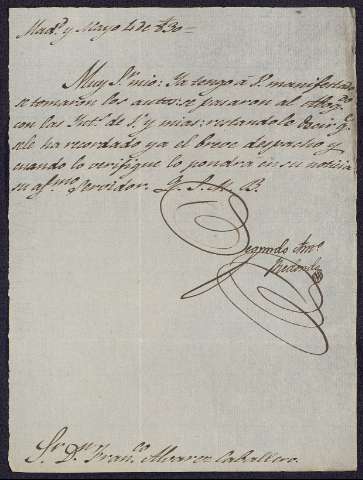 Mad.d y Mayo 4 de 830=
Muy S.r mio: Ya tengo á V. manifestado
se tomaron los autos: se pasaron al
con las Int.s de V. y mias:
se le ha recordado ya el breve despacho y
cuando lo verifique lo pondrá en su noticia
su af.mo Servidor Q. S. M. B.
Segundo Ant.o
Redondo
S.or D.n Fran.co Alvarez Caballero.